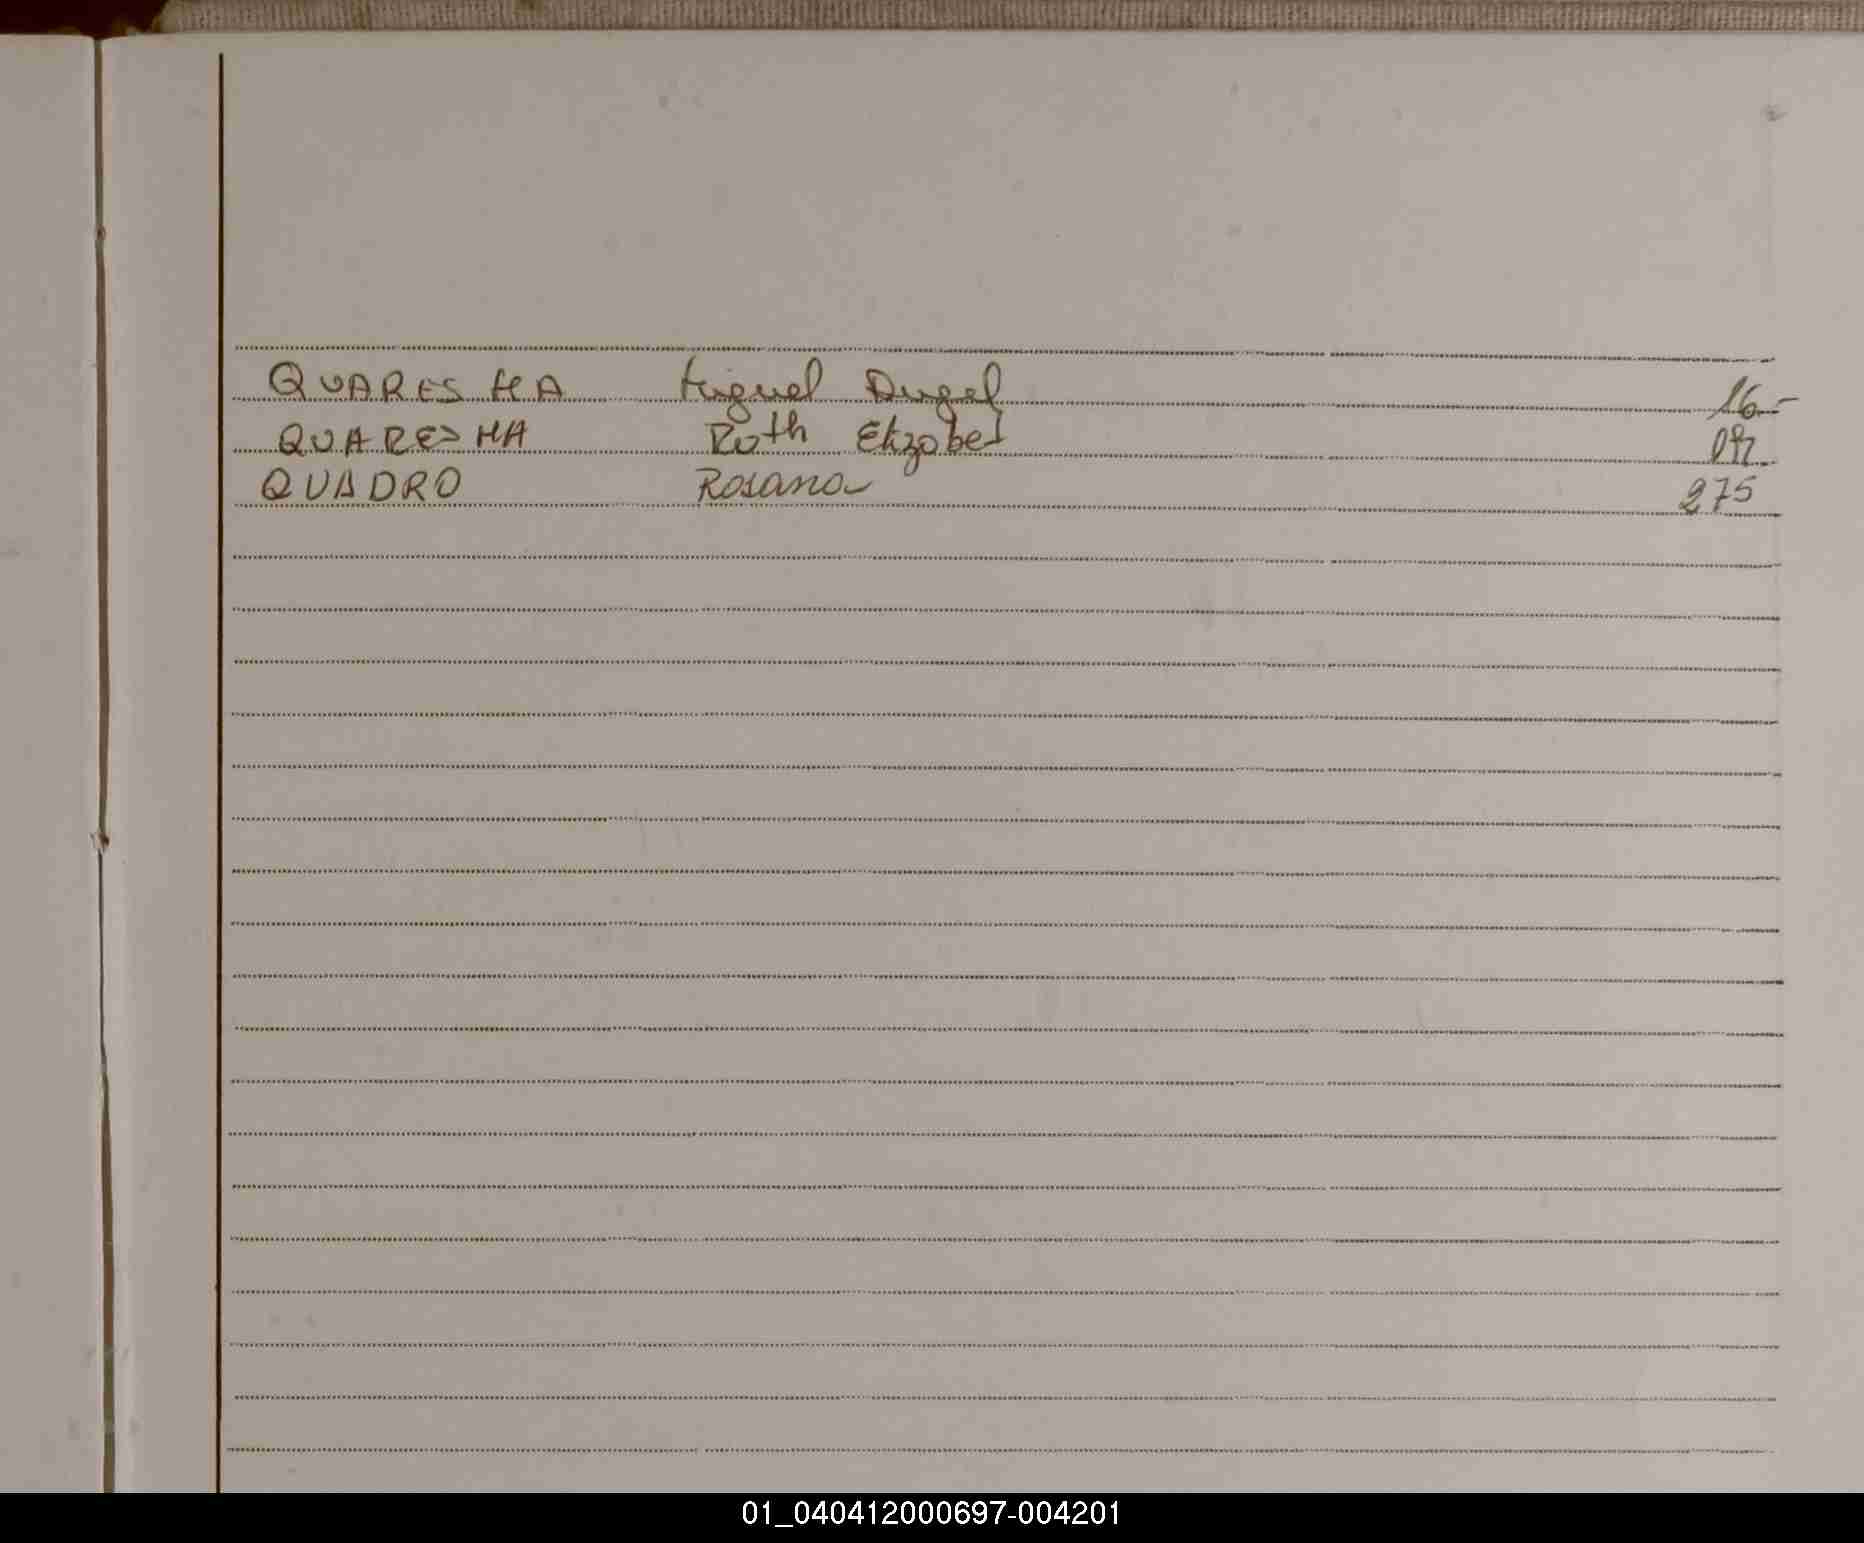 QUARESMA Miguel Angel 16-
QUARESMA Ruth Elizabet
QUADRO Rosana 275
01_040412000697-004201